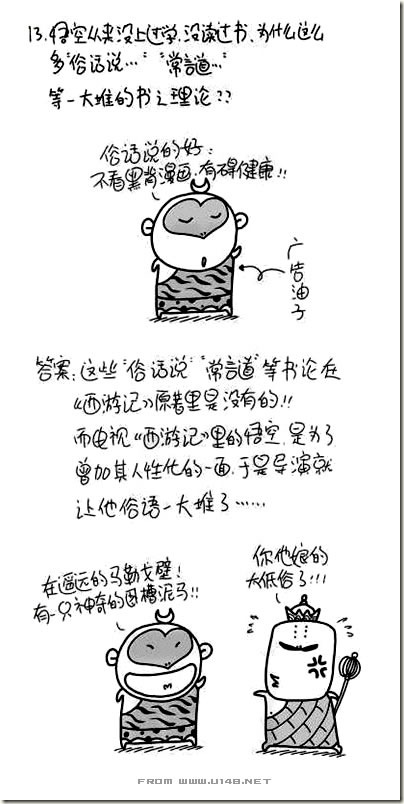 13.悟空从来没上过学,没读过书、为什么这么
多"俗话说…""常言道…"
等一大堆的书之理论??
俗话说的好:
不看黑背漫画,有碍健康!!
广告油子
答案:这些"俗话说""常言道"等书论在
《西游记》原著里是没有的!!
而电视《西游记》里的悟空,是为了
曾加其人性化的一面,于是导演就
让他俗语一大堆了……
在遥远的马勒戈壁!
有一只神奇的草槽泥马!!
你他娘的
太低俗了!!!
FROM WWW.U148.NET